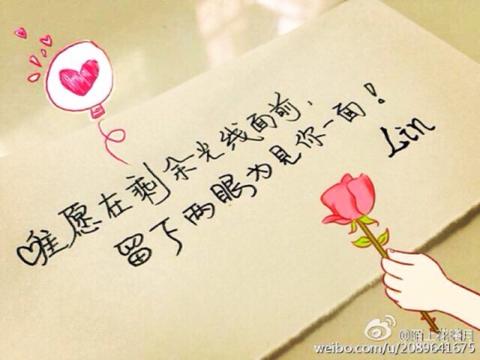 唯愿在剩余光线面前,
留下两眼为见你一面!
Lin
@陌上花开月
weibo.com/u/2089641675